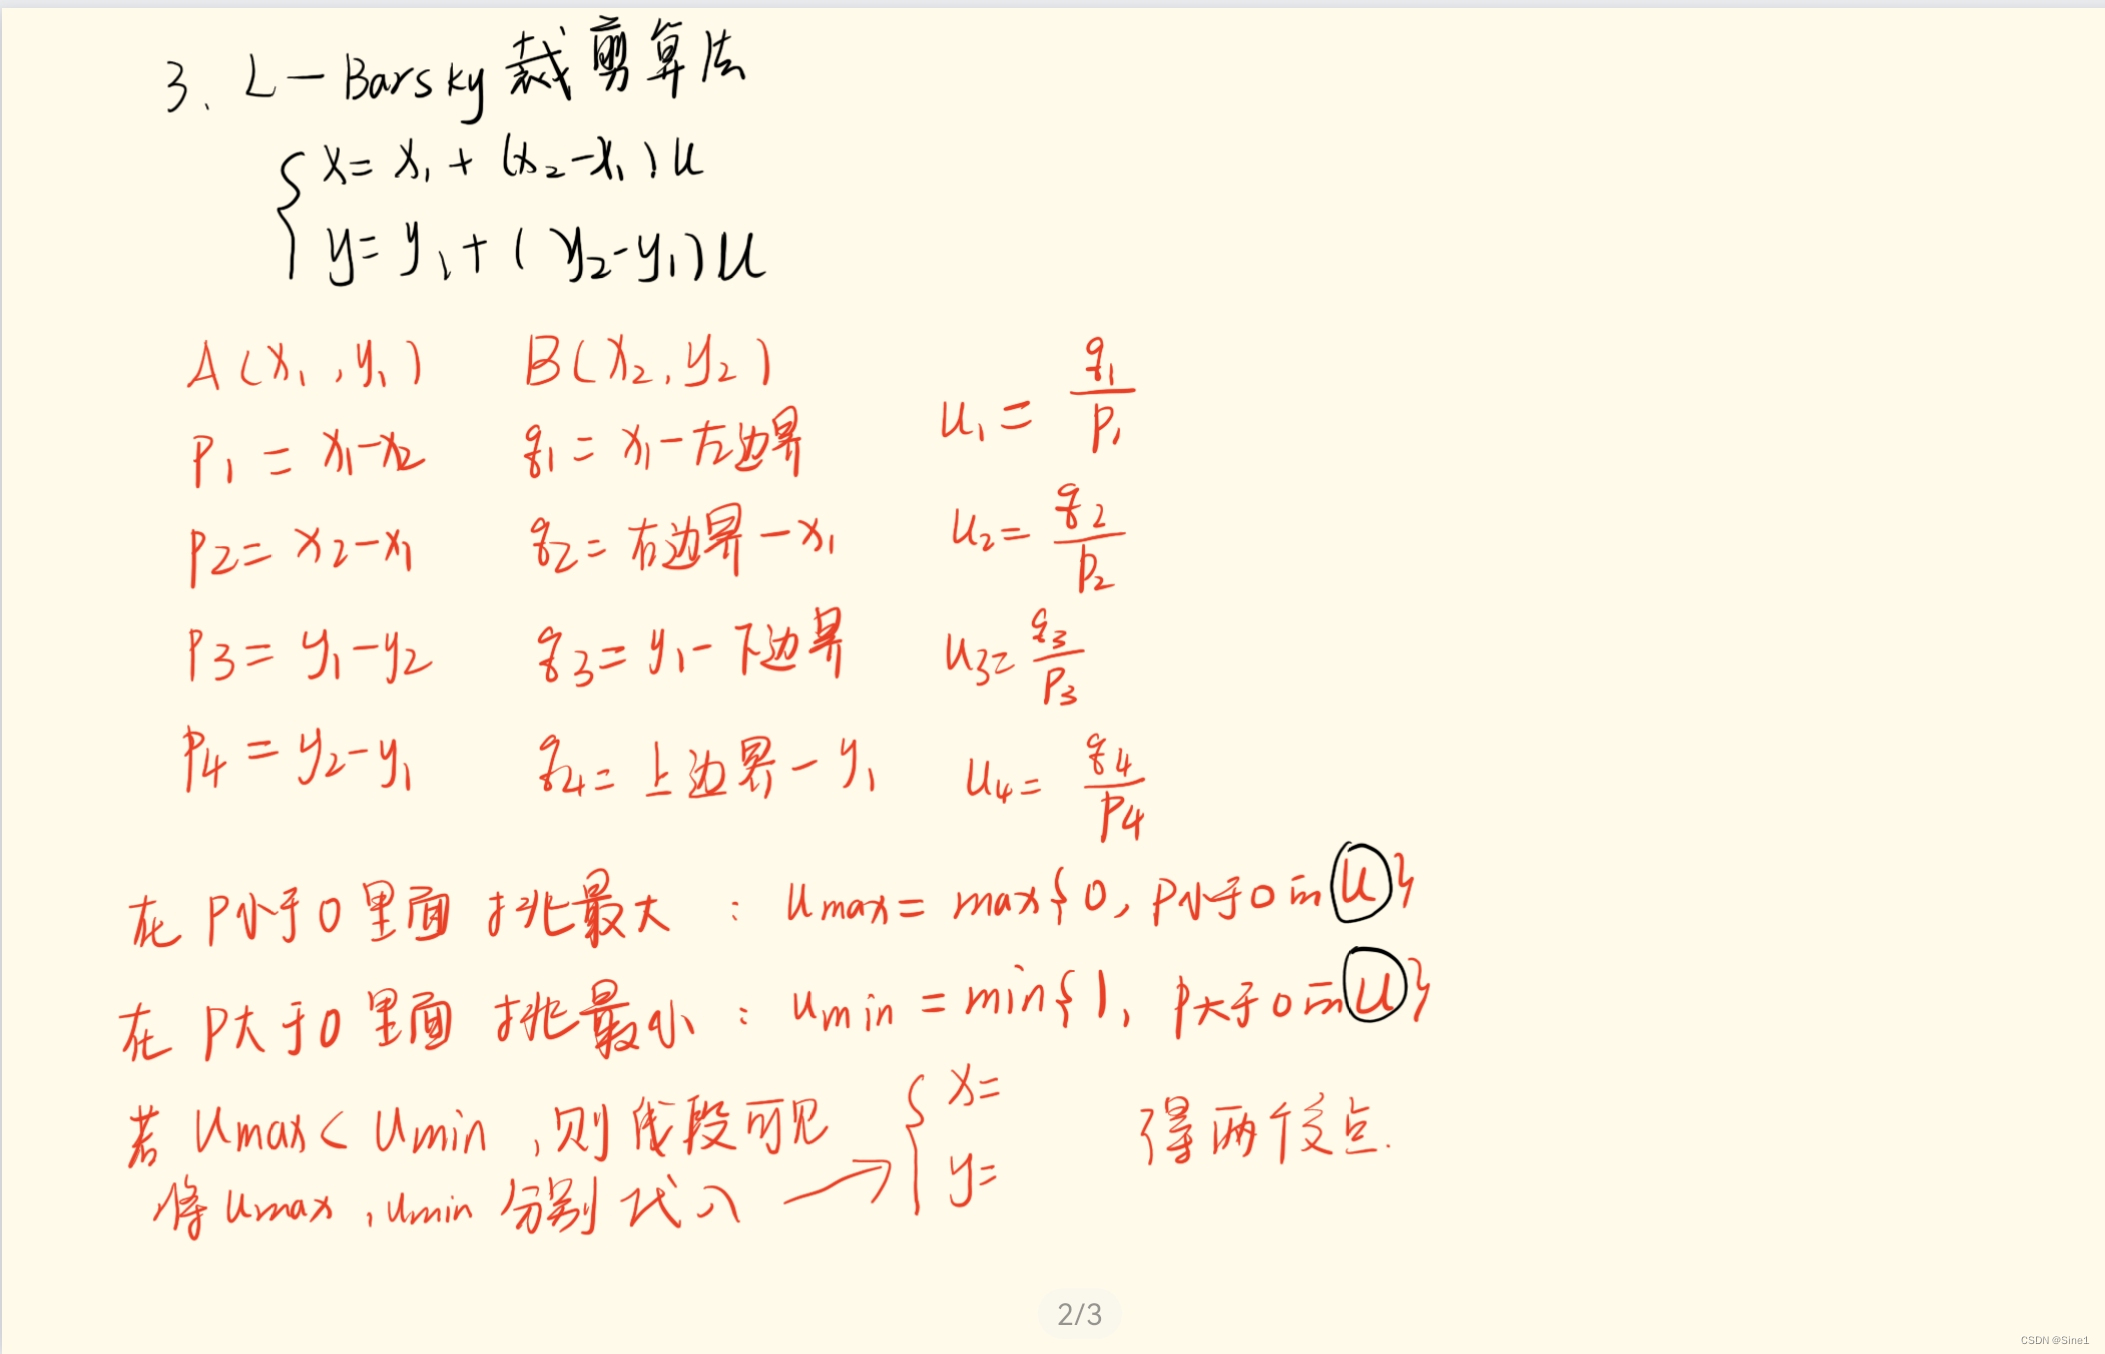 3、L-Barsky 裁剪算法
x = x₁ + (x₂-x₁)u
y = y₁ + (y₂-y₁)u
A(x₁,y₁) B(x₂,y₂)
P₁ = x₁-x₂ q₁ = x₁-左边界 u₁ = q₁/P₁
P₂ = x₂-x₁ q₂ = 右边界-x₁ u₂ = q₂/P₂
P₃ = y₁-y₂ q₃ = y₁-下边界 u₃ = q₃/P₃
P₄ = y₂-y₁ q₄ = 上边界-y₁ u₄ = q₄/P₄
在 P小于0里面 挑最大 : umax = max{0, P小于0的u}
在 P大于0里面 挑最小 : umin = min{1, P大于0的u}
若 umax < umin ,则线段可见
将umax,umin 分别代入 → { x= y= 得两个交点.
2/3
CSDN @Sine1